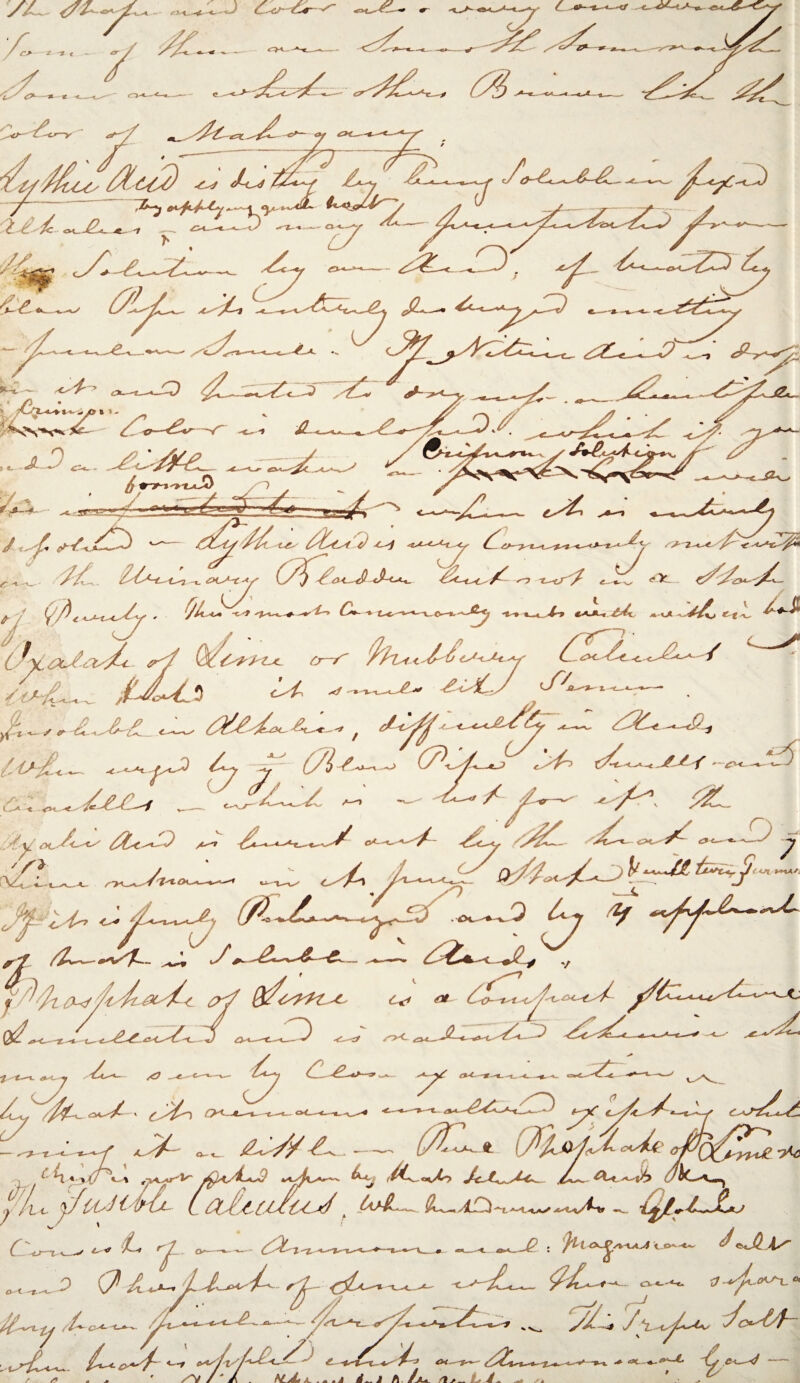 The Shape and Color also vary Considerably
Some of them are Smooth Some rough
Some are white others Brown like the
Color of Mahogany;
Lythic Acid is disting by being Soluble in fixed
by applying gentle heat
Alkalies and may be precipitated from
Solution by an Acid, if heated by
blow Pipe its entirely destroyed emitting
peculiar Smell. If Nitric Acid is drop
on it and heated to dryness a beautiful
Crimson
Color is developed. which if you
add a little water a Crimson Solution will
formed
be when it is entirely
disolved — Lythic Acid is very Commonly met with
in the Urinary Bladder but not in a State
of Purity. This is most Commonly met with in
Oxalate of Lime or Mulberry Calculus
When heated it smells like Semen
Insoluble in Alkalies, difficultly in Acids
When urged by ye Blow Pipe it Swells and
Crackells — which is a test for it. The
Oxalic Acid is burnt out by the heat and ye
Lime remains in its pure State & will turn
If it is finely Pulverized and by ye applicat
of heat is Soluble in Acids,
Phosphate of Lime is a Compact Structure
Lamellated and is radiated likewise wh
may be seen by Close examination
by Heat. it remains unaltered excepting whit
-ning it a little — Pure Phosphate of Lime
this is not acted upon by Heat Soluble in Acids
The Fusible Calculus, when heated runs into a Globule
Consists of an Ammoniacal: Magnesian Salt
and Phosphate of Lime when these are separa
they have peculiar properties. This Triple Salt
when heat is applied emits an Ammoniacal Gas —